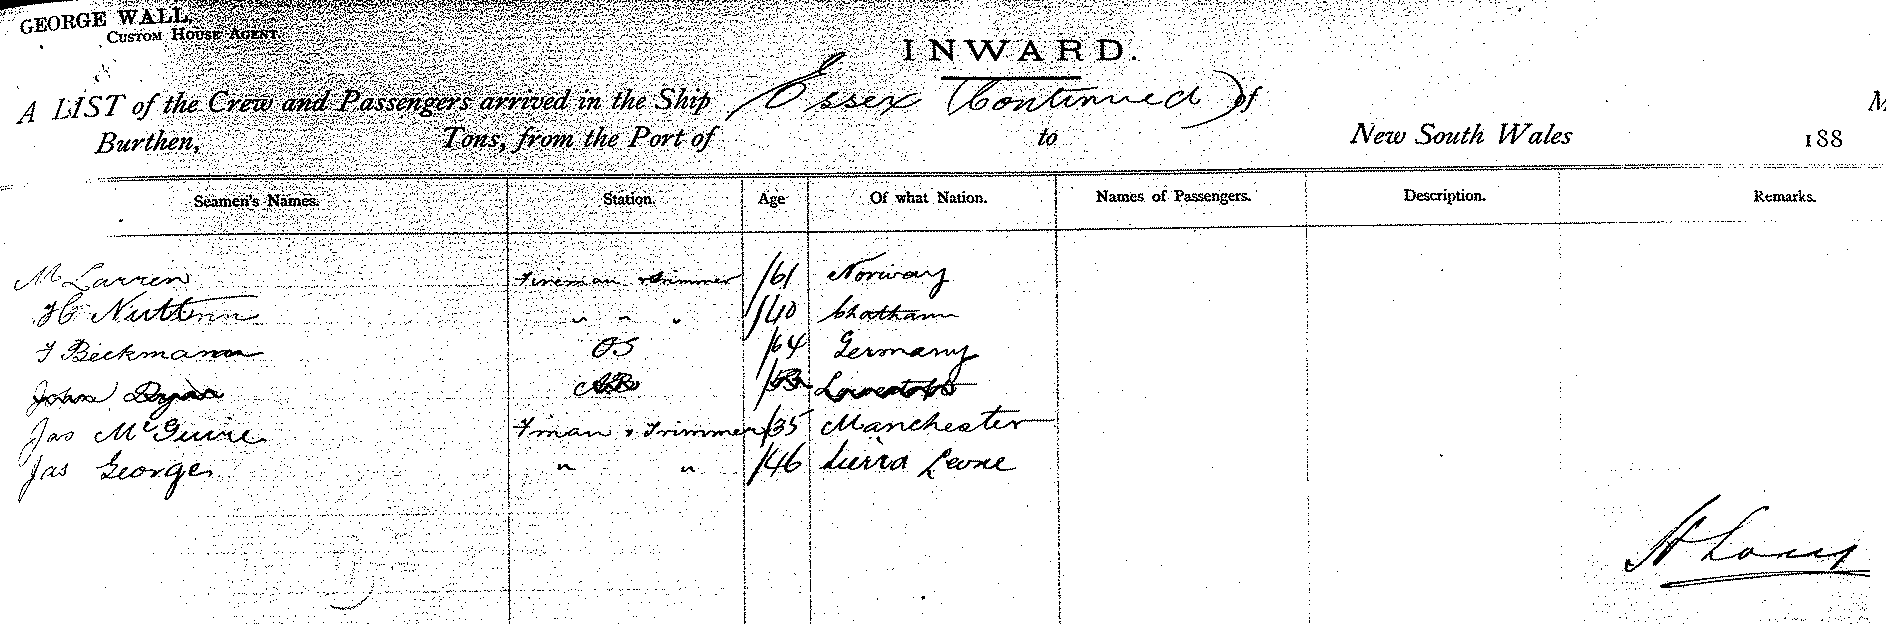 GEORGE WALL,
CUSTOM HOUSE AGENT.
INWARD.
A LIST of the Crew and Passengers arrived in the Ship Essex (Continued) of M
Burthen, Tons, from the Port of to New South Wales 188
Seamen's Names. Station. Age Of what Nation. Names of Passengers. Description. Remarks.
M Larren Fireman & Trimmer /61 Norway
" " " /40 Chatham
F Beckmann OS /64 Germany
John Ryan AB Lowestoft
Jas McGuire Fman & Trimmer /35 Manchester
Jas George " " /46 Sierra Leone